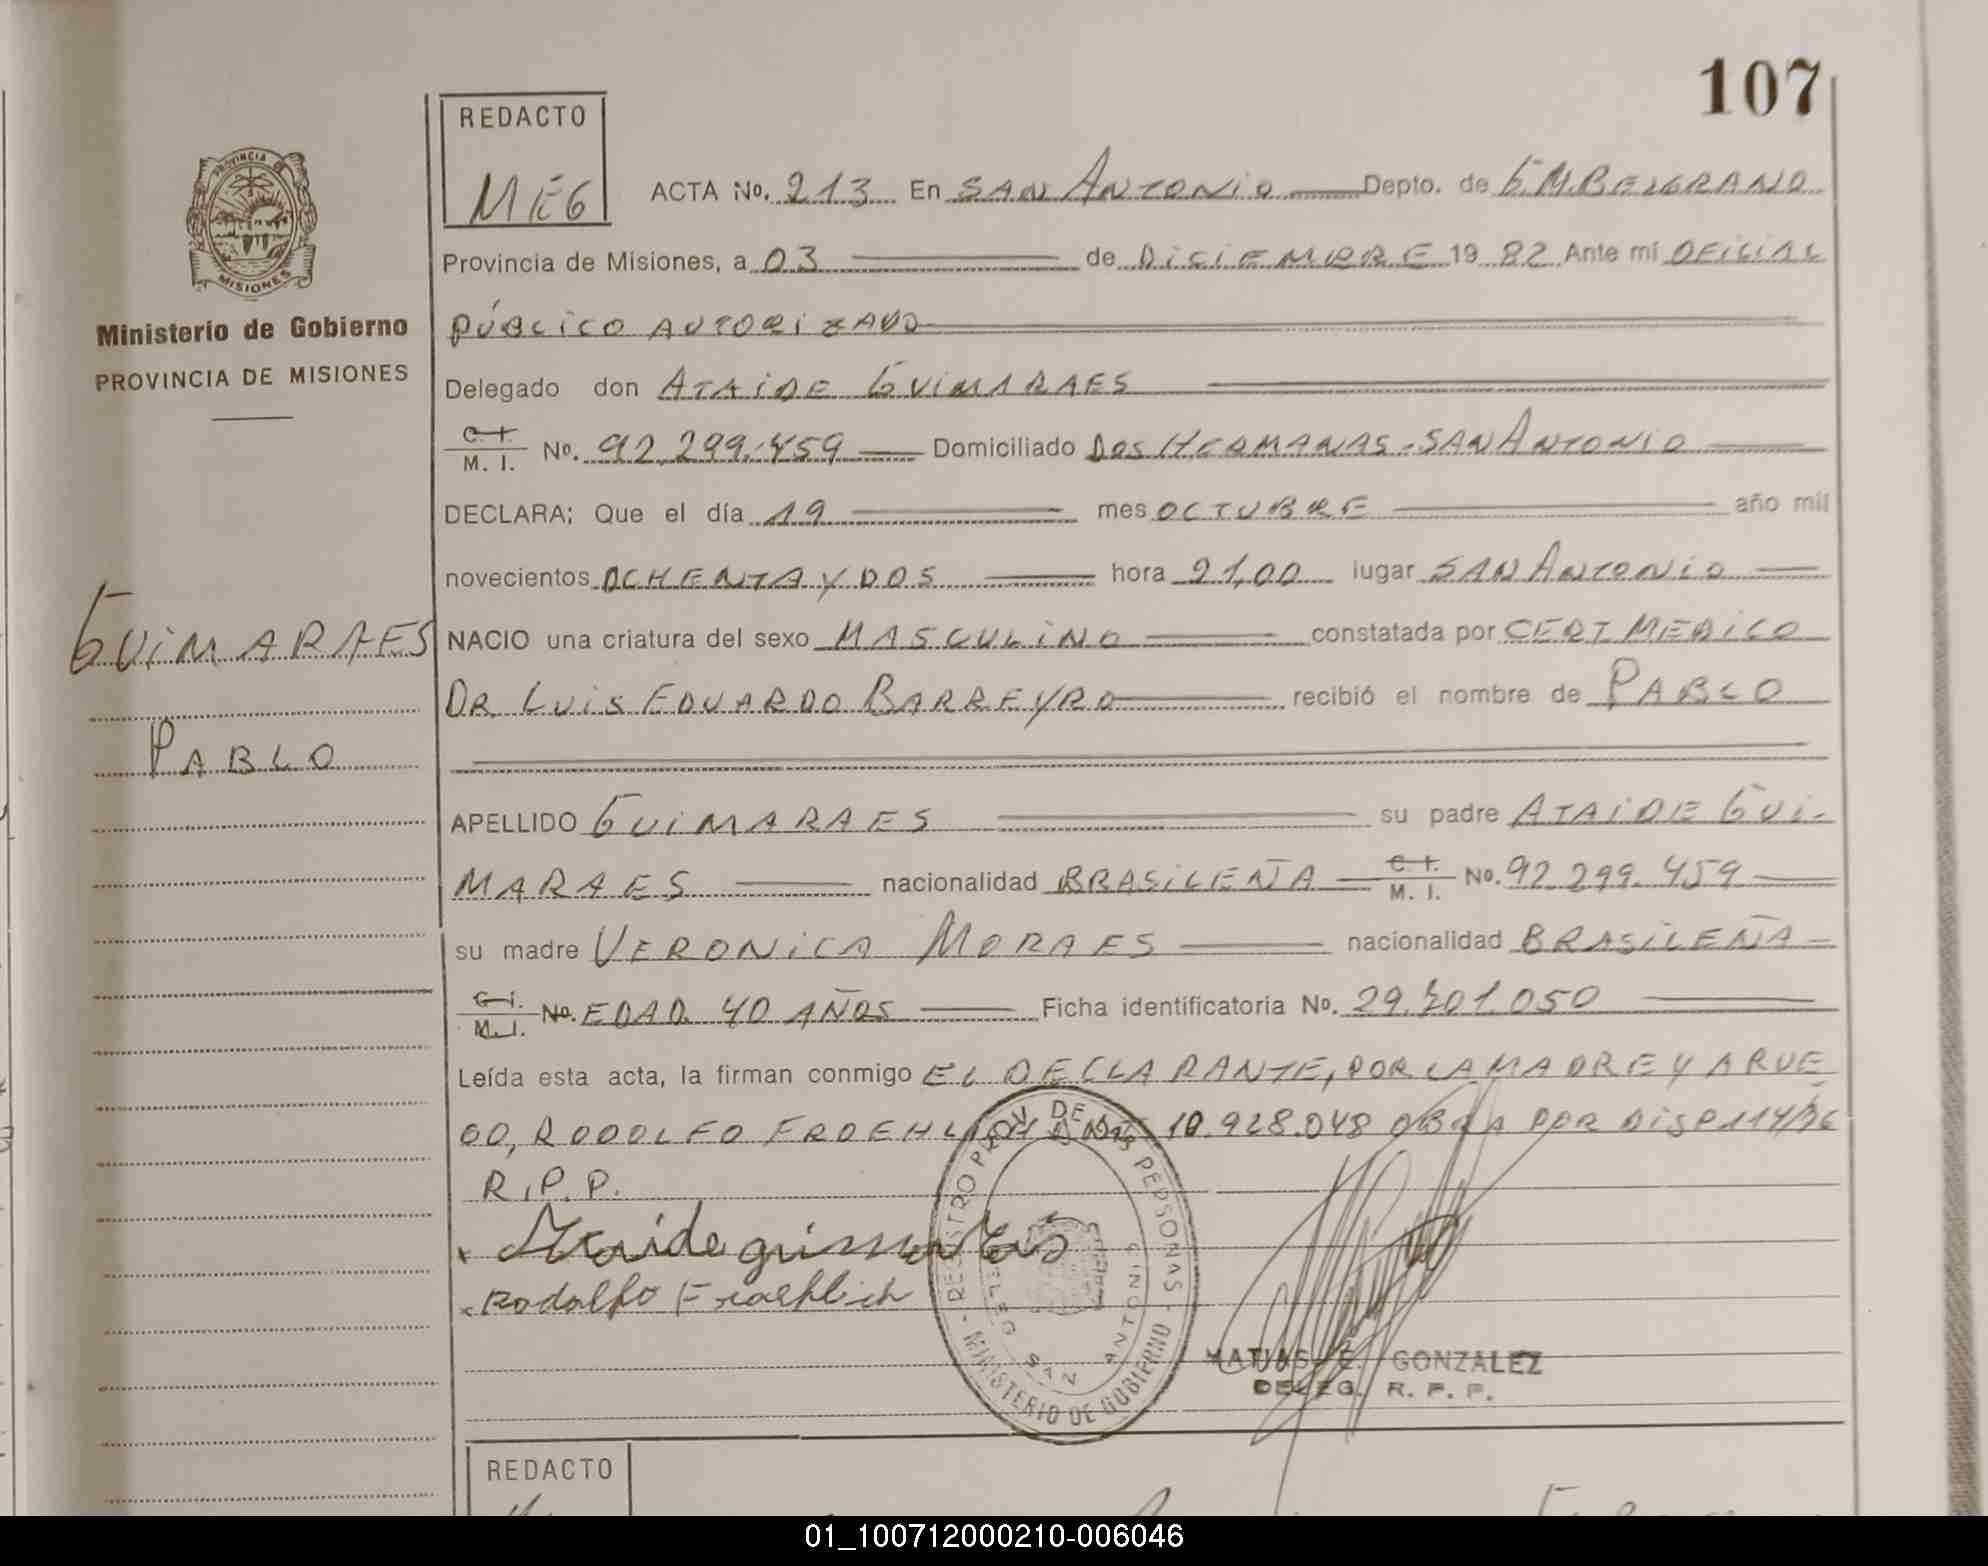 107
REDACTO
MEG
ACTA No. 213 En SAN ANTONIO Depto. de G.M. BELGRANO
PROVINCIA DE MISIONES
Provincia de Misiones, a 03 de DICIEMBRE 19 82 Ante mí OFICIAL
Ministerio de Gobierno
PÚBLICO AUTORIZADO
PROVINCIA DE MISIONES
Delegado don ATAIDE GUIMARAES
C. I. M. I. No. 92.299.459 Domiciliado DOS HERMANAS - SAN ANTONIO
DECLARA; Que el día 19 mes OCTUBRE año mil
novecientos OCHENTA Y DOS hora 21,00 lugar SAN ANTONIO
GUIMARAES
NACIO una criatura del sexo MASCULINO constatada por CERT MEDICO
DR. LUIS EDUARDO BARREYRO recibió el nombre de PABLO
PABLO
APELLIDO GUIMARAES su padre ATAIDE GUI-
MARAES nacionalidad BRASILEÑA C. I. M. I. No. 92.299.459
su madre VERONICA MORAES nacionalidad BRASILEÑA
C. I. M. I. No. EDAD 40 AÑOS Ficha identificatoria No. 29.701.050
Leída esta acta, la firman conmigo EL DECLARANTE, POR LA MADRE Y A RUE
GO, RODOLFO FROEHLICH 10.928.048 POR DISP 114/76
R.P.P.
Ataide
Rodolfo Froehlich
REGISTRO PROV. DE LAS PERSONAS - MINISTERIO DE GOBIERNO -
DELEG. SAN ANTONIO
MATIAS E. GONZALEZ
DELEG. R. P. P.
REDACTO
01_100712000210-006046